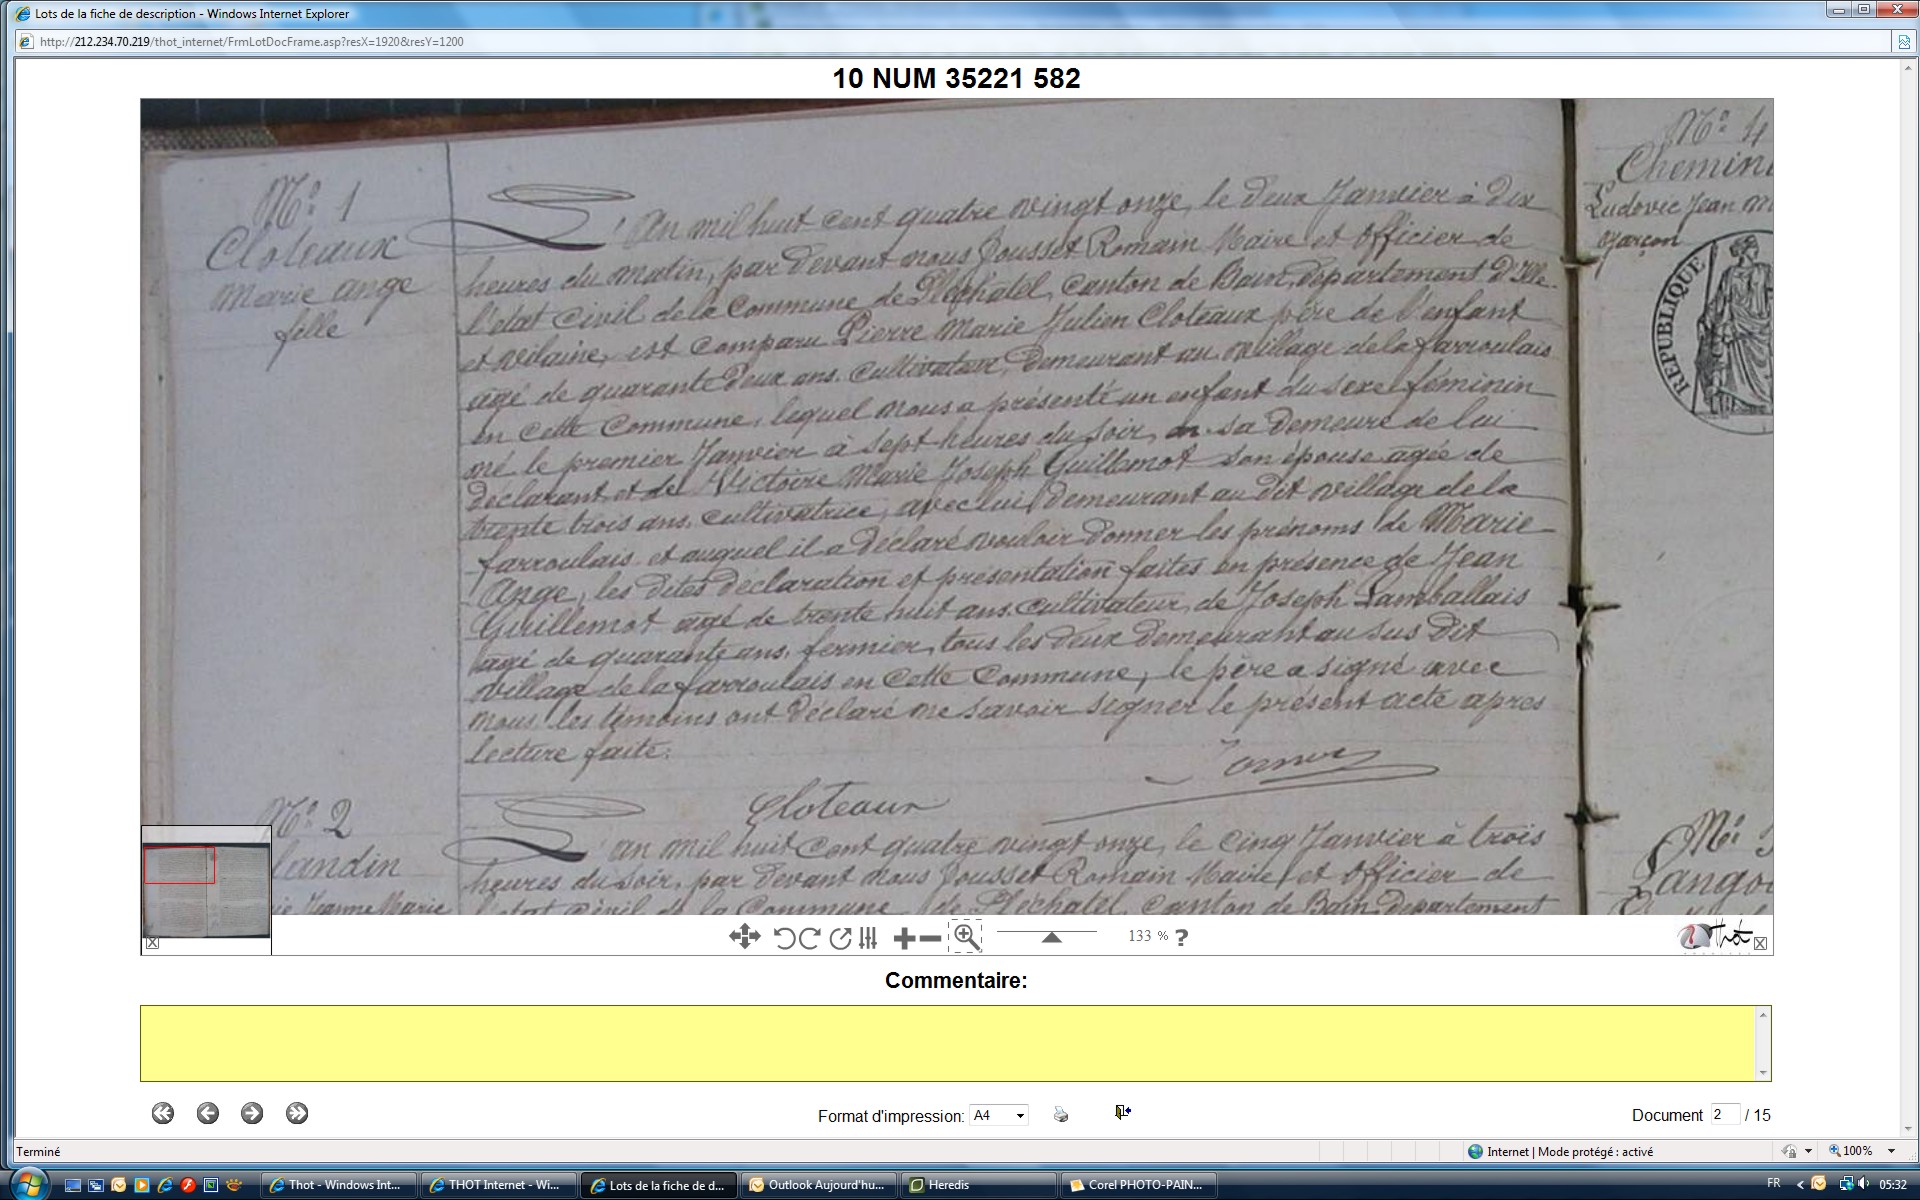 Lots de la fiche de description - Windows Internet Explorer
http://212.234.70.219/thot_internet/FrmLotDocFrame.asp?resX=1920&resY=1200
10 NUM 35221 582
N° 1
Cloteaux
Marie Ange
fille
L'An mil huit cent quatre vingt onze, le deux Janvier à dix
heures du matin, par devant nous Jousset Romain Maire et Officier de
l'état Civil de la Commune de Pléchatel, Canton de Bain, département d'Ille-
et vilaine, est comparu Pierre Marie Julien Cloteaux père de l'enfant
agé de quarante deux ans, Cultivateur, demeurant au village de la farroulais
en Cette Commune, lequel nous a présenté un enfant du sexe féminin
né le premier Janvier à sept heures du soir, en sa demeure de lui
déclarant et de Victoire Marie Joseph Guillemot son épouse agée de
trente trois ans, cultivatrice, avec lui demeurant au dit village de la
farroulais, et auquel il a déclaré vouloir donner les prénoms de Marie
Ange, les dites déclaration et présentation faites en présence de Jean
Guillemot agé de trente huit ans, cultivateur, de Joseph Lamballais
agé de quarante ans, fermier, tous les deux demeurant au sus dit
village de la farroulais en Cette Commune, le père a signé avec
nous, les témoins ont déclaré ne savoir signer le présent acte apres
lecture faite.
Cloteaux
N° 2
landin
Jeanne Marie
L'an mil huit Cent quatre vingt onze, le cinq Janvier à trois
heures du soir, par devant nous Jousset Romain Maire et Officier de
l'état Civil de la Commune de Pléchatel, Canton de Bain département
N° 4
Chemin
Ludovic Jean M
garçon
REPUBLIQUE
N°
Lango
133 % ?
Thot
Commentaire:
Format d'impression: A4
Document 2 / 15
Terminé
Internet | Mode protégé : activé
100%
Thot - Windows Int...
THOT Internet - Wi...
Lots de la fiche de d...
Outlook Aujourd'hu...
Heredis
Corel PHOTO-PAIN...
FR
05:32